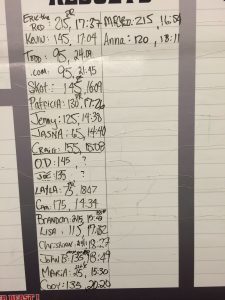 RESULTS
Eric the
Red: 215, 17:37
Kevin: 145, 17:04
Todd: 95, 24:09
.com: 95, 21:45
Skot: 145, 16:09
Patricia: 130, 17:26
Jenny: 125, 14:38
Jasna: 65, 14:40
Craig: 155, 15:08
O.D: 145, ?
Joe: 135, ?
Layla: 75, 18:07
Cam: 175, 14:34
Brandon: 215,
Lisa: 115, 17:02
Christian: 18:27
John B: 135, 18:49
Maria: 15:30
Coby: 135, 20:20
Marko: 215, 16:54
Anna: 120, 18:11